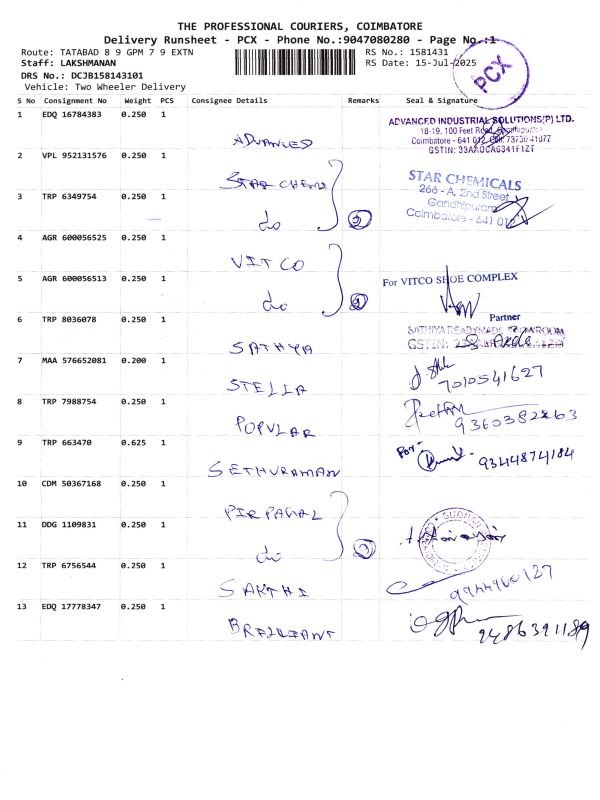 THE PROFESSIONAL COURIERS, COIMBATORE
Delivery Runsheet - PCX - Phone No.:9047080280 - Page No.:1
Route: TATABAD 8 9 GPM 7 9 EXTN RS No.: 1581431
Staff: LAKSHMANAN RS Date: 15-Jul-2025
PCX
DRS No.: DCJB158143101
Vehicle: Two Wheeler Delivery
S No Consignment No Weight PCS Consignee Details Remarks Seal & Signature
1 EDQ 16784383 0.250 1 ADVANCED
ADVANCED INDUSTRIAL SOLUTIONS(P) LTD.
18-19, 100 Feet Road,
Coimbatore - 641 012, Cell: 73730 41077
GSTIN:
2 VPL 952131576 0.250 1 STAR CHEMI
STAR CHEMICALS
266 - A, 2nd Street,
Gandhipuram
Coimbatore - 641 012
3 TRP 6349754 0.250 1 do 2
4 AGR 600056525 0.250 1 VITCO
5 AGR 600056513 0.250 1 do 2
For VITCO SHOE COMPLEX
Partner
6 TRP 8036078 0.250 1 SATHYA
SATHYA READYMADE SHOWROOM
GSTIN:
7 MAA 576652081 0.200 1 STELLA 7010541627
8 TRP 7988754 0.250 1 POPULAR 9360382863
9 TRP 663470 0.625 1 SETHURAMAN For 9344874184
10 CDM 50367168 0.250 1 PIRPANAL
11 DDG 1109831 0.250 1 do 2
12 TRP 6756544 0.250 1 SAKTHI
13 EDQ 17778347 0.250 1 BRILLIANT 9486391189